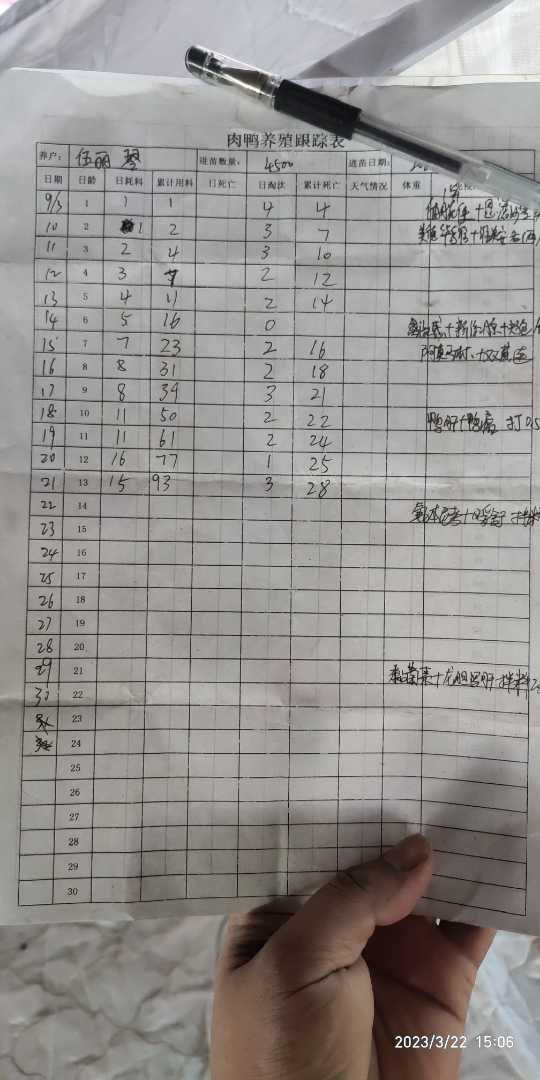 肉鸭养殖跟踪表
养户: 伍丽琴 进苗数量: 4500 进苗日期:
日期 日龄 日耗料 累计用料 日死亡 日淘汰 累计死亡 天气情况 体重
9/3 1 1 1 4 4
10 2 1 2 3 7
11 3 2 4 3 10
12 4 3 7 2 12
13 5 4 11 2 14
14 6 5 16 0
15 7 7 23 2 16 阿莫西林
16 8 8 31 2 18
17 9 8 39 3 21
18 10 11 50 2 22 鸭肝+鸭 打0.5
19 11 11 61 2 24
20 12 16 77 1 25
21 13 15 93 3 28
22 14
23 15
24 16
25 17
26 18
27 19
28 20
29 21 龙胆泻肝 拌料
30 22
23
24
25
26
27
28
29
30
2023/3/22 15:06